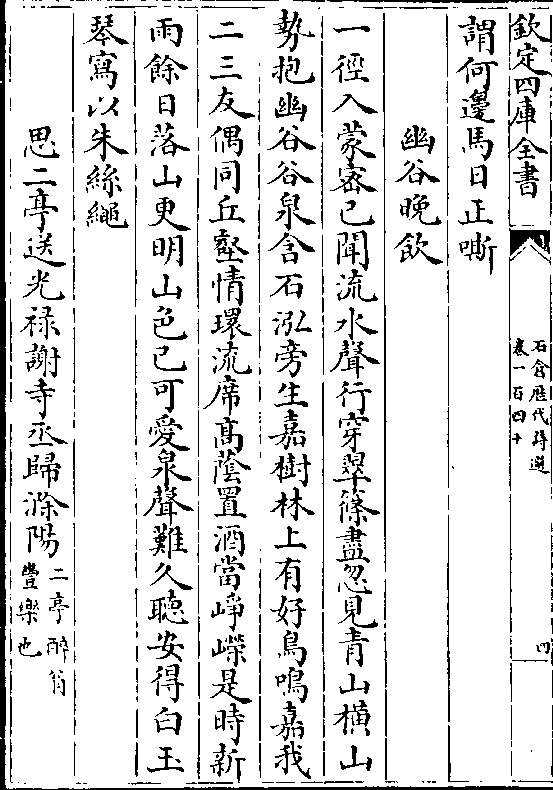 欽定四庫全書
石倉歴代詩選
卷一百四十
四
謂何邊馬日正嘶
幽谷晚飲
一徑入蒙密已聞流水聲行穿翠篠盡忽見青山横山
勢抱幽谷谷泉含石泓旁生嘉樹林上有好鳥鳴嘉我
二三友偶同丘壑情環流席高蔭置酒當崢嶸是時新
雨餘日落山更明山色已可愛泉聲難久聽安得白玉
琴寫以朱絲繩
思二亭送光禄謝寺丞歸滁陽二亭醉翁
豐樂也